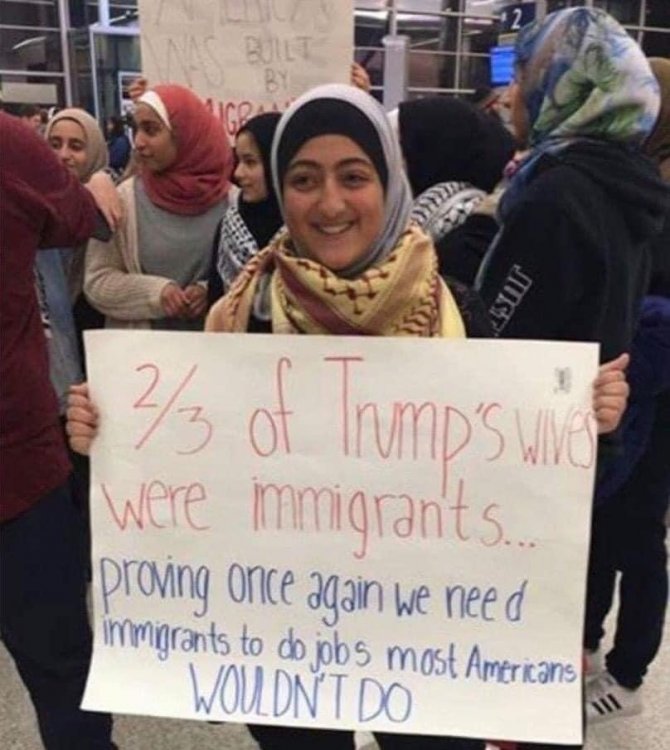 AMERICA
WAS BUILT
BY
IMMIGRAN
2
2/3 of Trump's wives
were immigrants...
proving once again we need
immigrants to do jobs most Americans
WOULDN'T DO